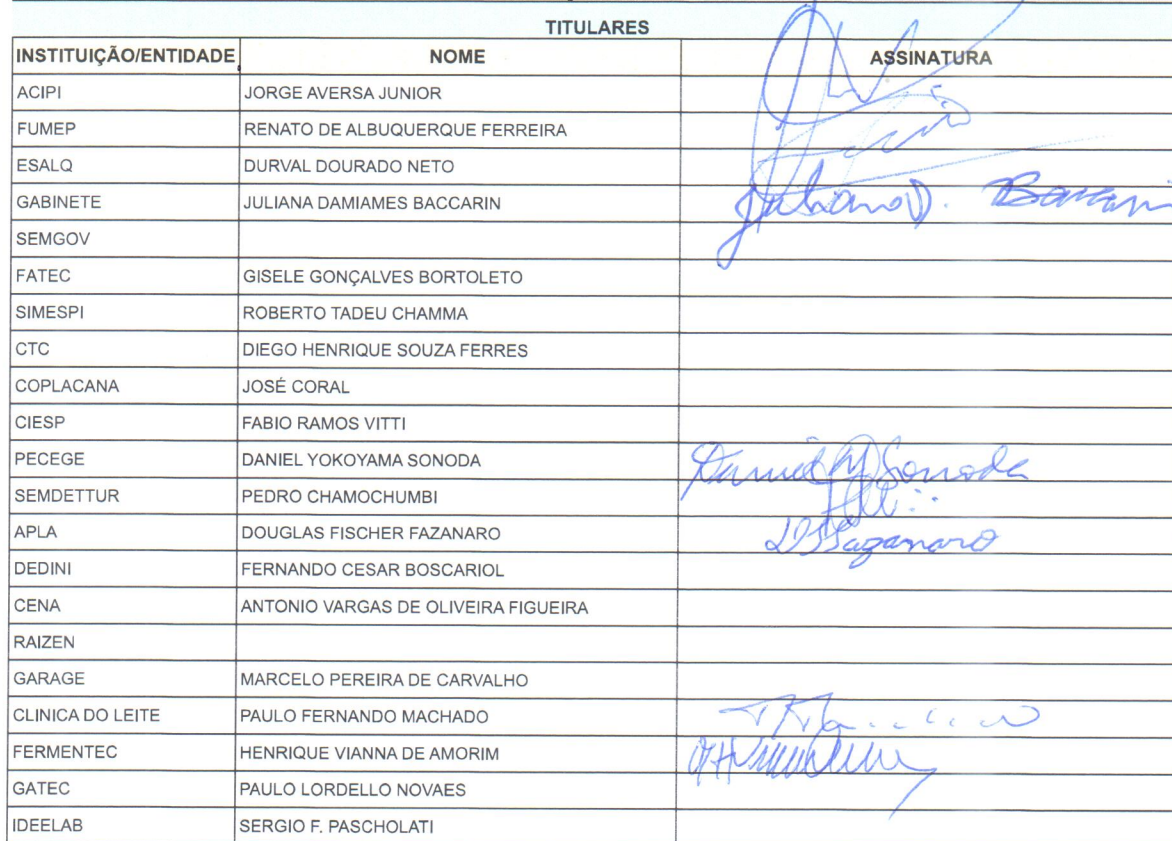 TITULARES
INSTITUIÇÃO/ENTIDADE NOME ASSINATURA
ACIPI JORGE AVERSA JUNIOR
FUMEP RENATO DE ALBUQUERQUE FERREIRA
ESALQ DURVAL DOURADO NETO
GABINETE JULIANA DAMIAMES BACCARIN Juliana D. Baccarin
SEMGOV
FATEC GISELE GONÇALVES BORTOLETO
SIMESPI ROBERTO TADEU CHAMMA
CTC DIEGO HENRIQUE SOUZA FERRES
COPLACANA JOSÉ CORAL
CIESP FABIO RAMOS VITTI
PECEGE DANIEL YOKOYAMA SONODA Daniel Y Sonoda
SEMDETTUR PEDRO CHAMOCHUMBI
APLA DOUGLAS FISCHER FAZANARO DFFazanaro
DEDINI FERNANDO CESAR BOSCARIOL
CENA ANTONIO VARGAS DE OLIVEIRA FIGUEIRA
RAIZEN
GARAGE MARCELO PEREIRA DE CARVALHO
CLINICA DO LEITE PAULO FERNANDO MACHADO
FERMENTEC HENRIQUE VIANNA DE AMORIM
GATEC PAULO LORDELLO NOVAES
IDEELAB SERGIO F. PASCHOLATI